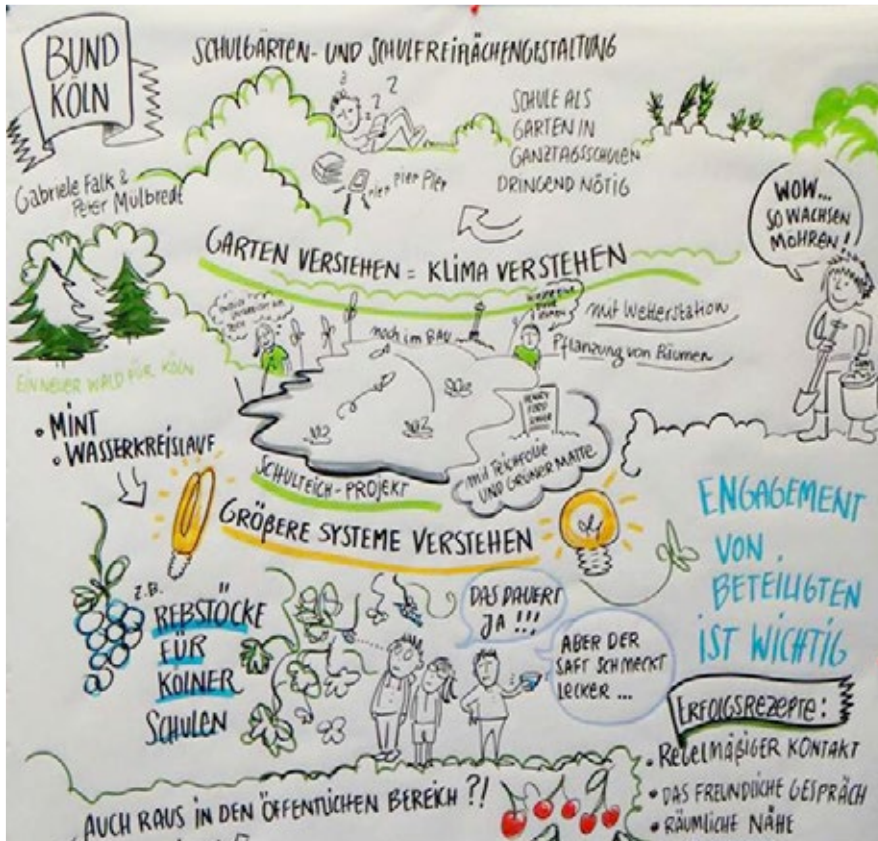 BUND
KÖLN
SCHULGÄRTEN- UND SCHULFREIFLÄCHENGESTALTUNG
Gabriele Falk &
Peter Mülbredt
z
z
z
SCHULE ALS
GARTEN IN
GANZTAGSSCHULEN
DRINGEND NÖTIG
Piep Piep
WOW...
SO WACHSEN
MÖHREN!
GARTEN VERSTEHEN = KLIMA VERSTEHEN
noch im BAU
mit Wetterstation
Pflanzung von Bäumen
EIN NEUER WALD FÜR KÖLN
• MINT
• WASSERKREISLAUF
HENRY
FORD
SCHULTEICH-PROJEKT
mit TEICHFOLIE
UND GRÜNER MATTE
GRÖßERE SYSTEME VERSTEHEN
ENGAGEMENT
VON
BETEILIGTEN
IST WICHTIG
Z.B.
REBSTÖCKE
FÜR
KÖLNER
SCHULEN
DAS DAUERT
JA !!!
ABER DER
SAFT SCHMECKT
LECKER ...
ERFOLGSREZEPTE:
• REGELMÄßIGER KONTAKT
• DAS FREUNDLICHE GESPRÄCH
• RÄUMLICHE NÄHE
AUCH RAUS IN DEN ÖFFENTLICHEN BEREICH ?!